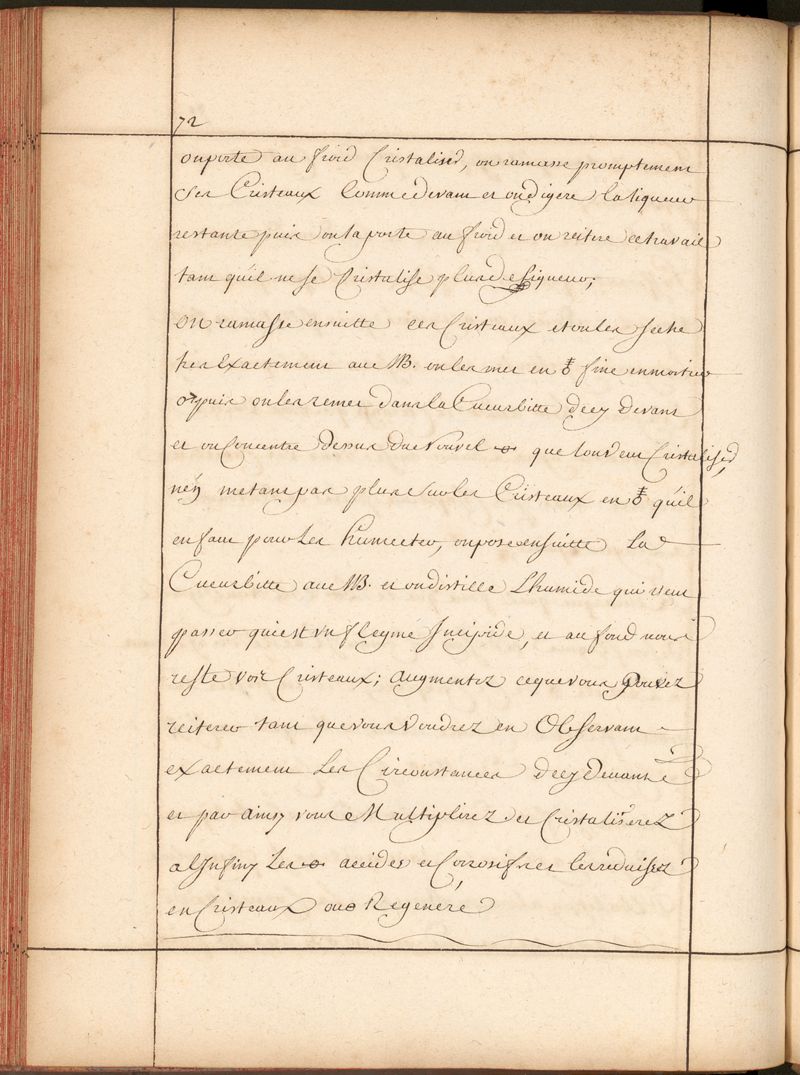 72
on porte au froid Cristalised, on ramasse promptement
ses Cristeaux Comme devant et on digere la liqueur
restante puis on la porte au froid et on reitere ce travail
tant qu'il ne se Cristalise plus de Liqueur;
on ramasse ensuitte ces Cristeaux et on les seche
tres Exactement au MB. on les met en fine en mortier
puis on les remet dans la Cucurbitte de cy devant
et on Concentre Dessus du Nouvel que l'on veut Cristalised,
n'en metant pas plus sur les Cristeaux en qu'il
en faut pour Les humecter, on pose ensuitte La
Cucurbitte au MB. et on distille L'humide qui veut
passer qui est un flegme Insipide, et au fond vous
reste vos Cristeaux; augmentez ce que vous pouvez
reiterer tant que vous voudrez en Observant
exactement Les Circonstances de cy Devant
et par ainsy vous Multiplirez et Cristaliserez
a l'Infiny Les accides et Corrosifs et les reduisez
en Cristeaux ou Regeneré